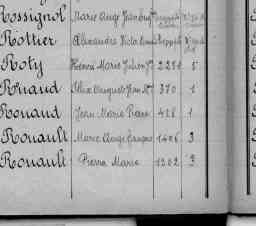 Rossignol Marie Ange
Rottier Alexandre Victor
Roty Henri Marie Julien 2251 5
Rouaud Félix Auguste Jean M. 370 1
Rouaud Jean Marie Pierre 428 1
Rouault Marie Ange François 1406 3
Rouault Pierre Marie 1202 3